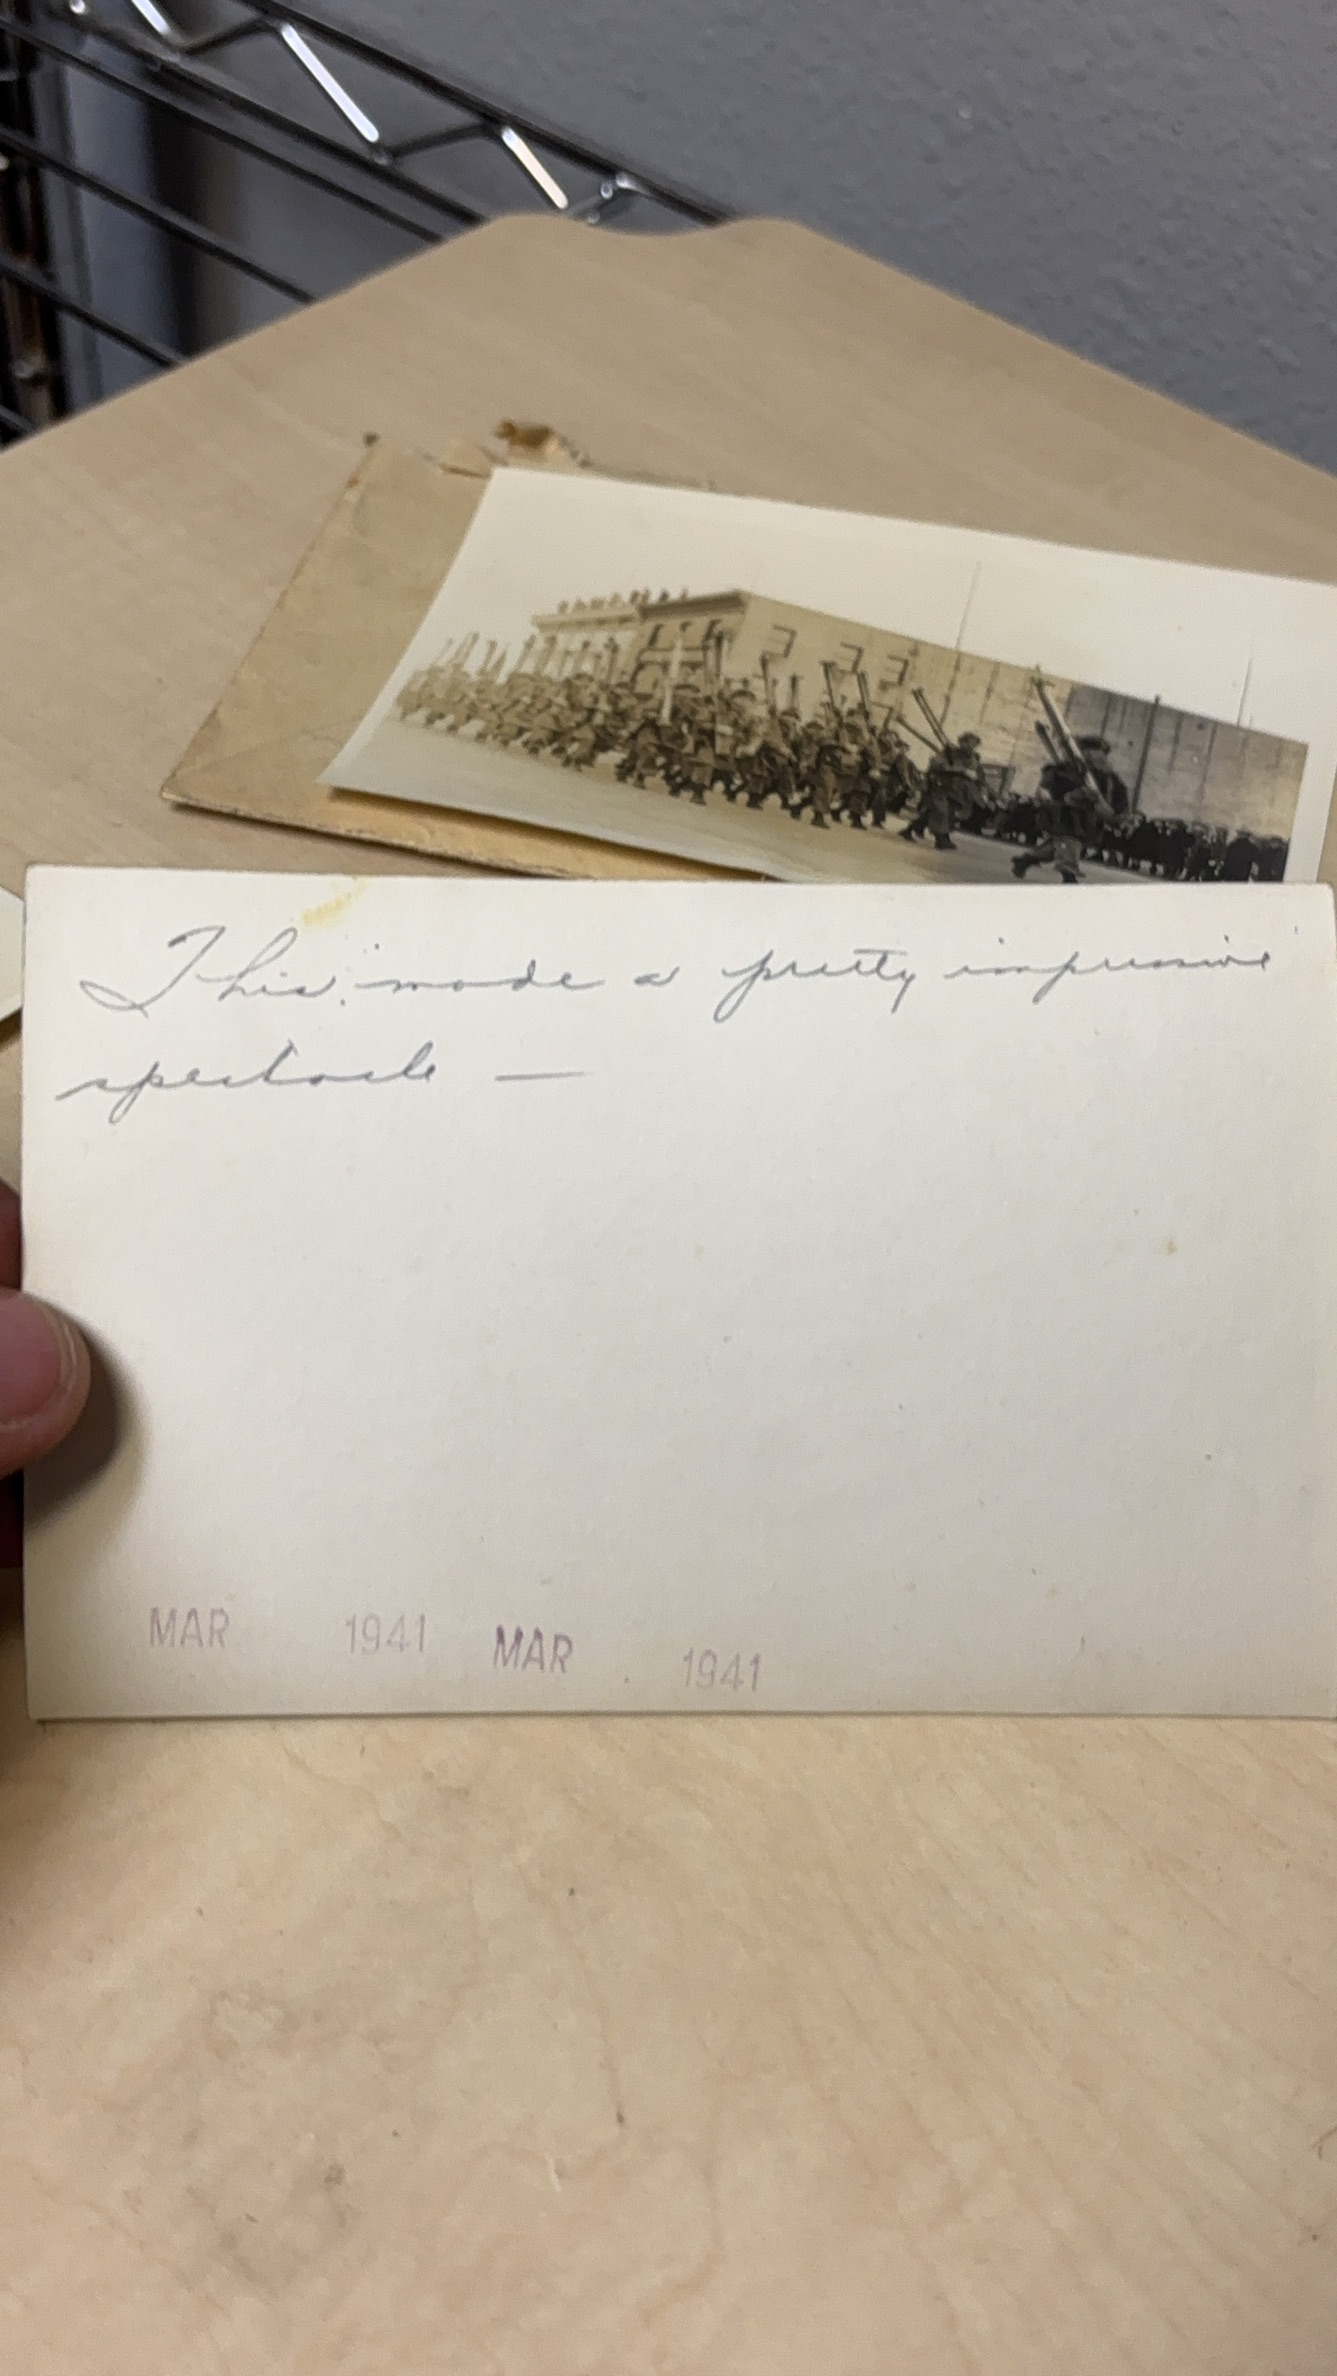 This made a pretty impressive
spectacle —
MAR 1941 MAR 1941